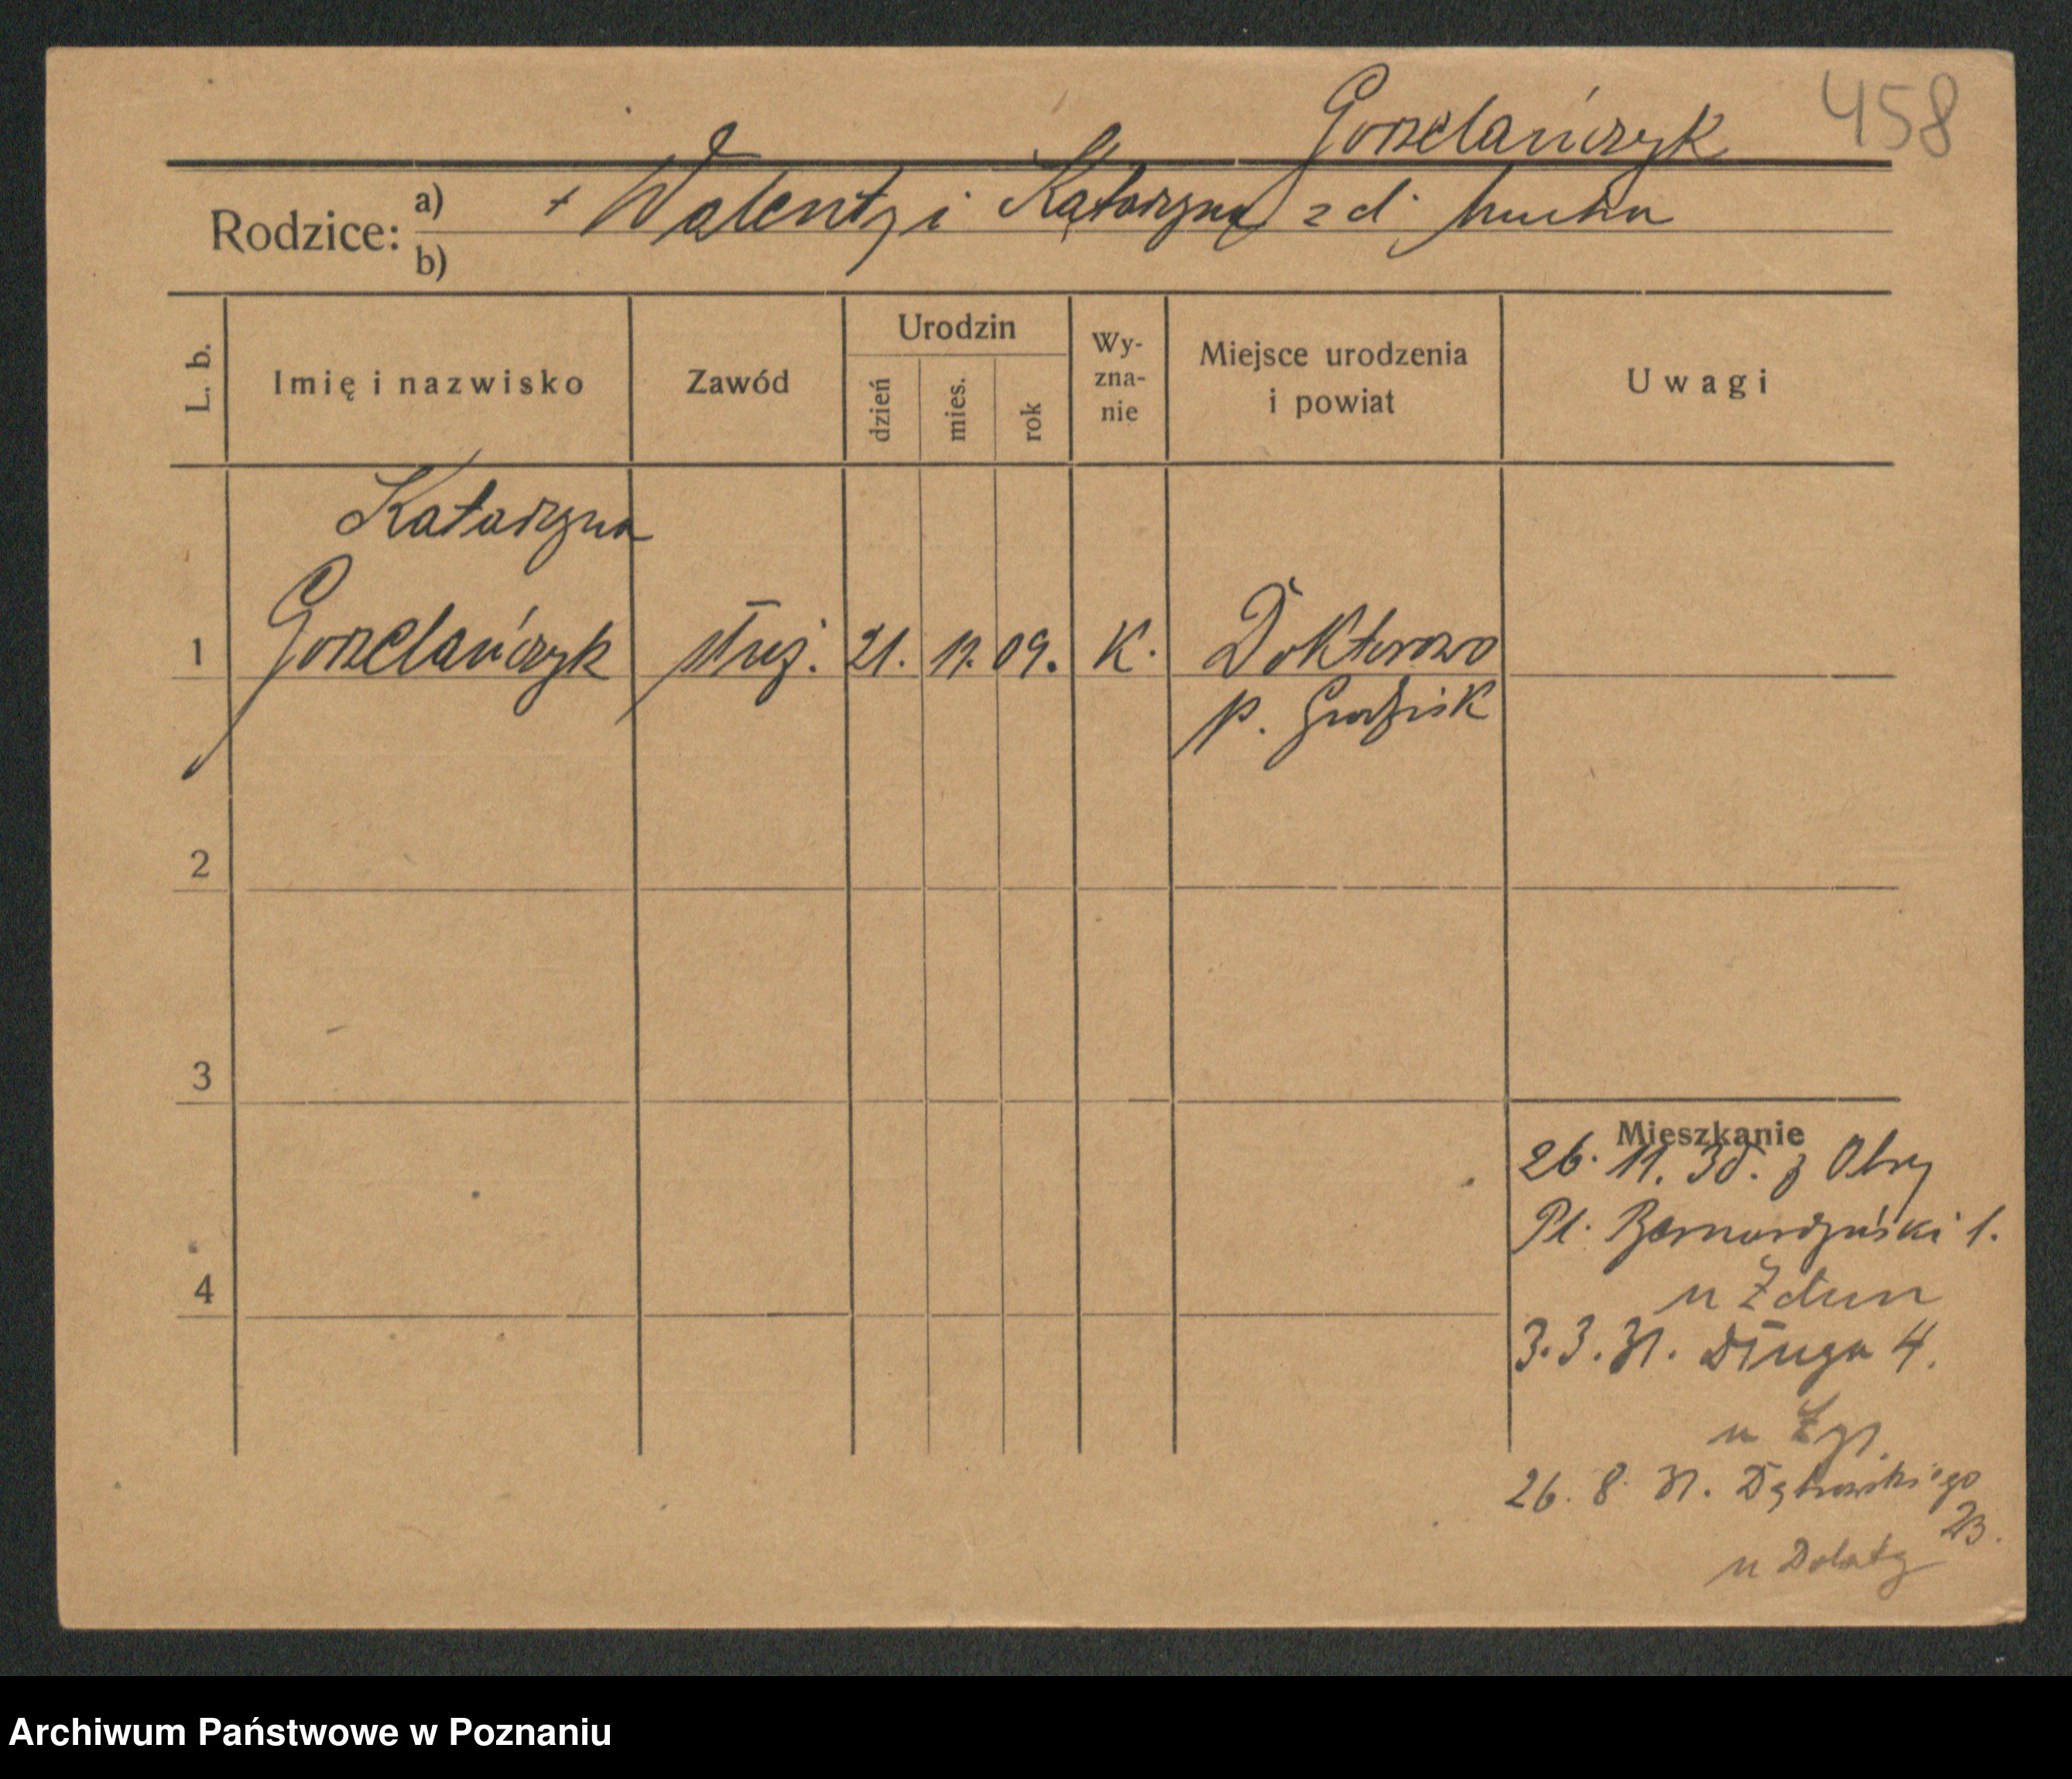 458
Gorzelańczyk
Rodzice: a) + Walenty i Katarzyna z d. Mucha
b)
L. b. Imię i nazwisko Zawód Urodzin dzień mies. rok Wy-zna-nie Miejsce urodzenia i powiat Uwagi
Katarzyna
1 Gorzelańczyk służ. 21. 11. 09. K. Doktorowo
p. Grodzisk
2
3
4
Mieszkanie
26. 11. 30. z Obry
Pl. Bernardyński 1.
u Zdun
3.3.31. Długa 4.
u
26. 8. 31. Dąbrowskiego
23.
u Dolaty
Archiwum Państwowe w Poznaniu